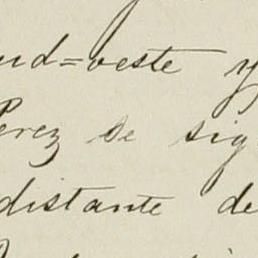 ud=oeste y
Perez se sig
distante de